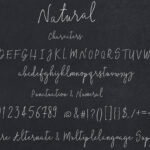 Natural
Characters
ABCDEFGHIJKLMNOPQRSTUVWXYZ
abcdefghijklmnopqrstuvwxyz
Punctuation & Numeral
0123456789
re Alternate & Multiplelanguage Sup